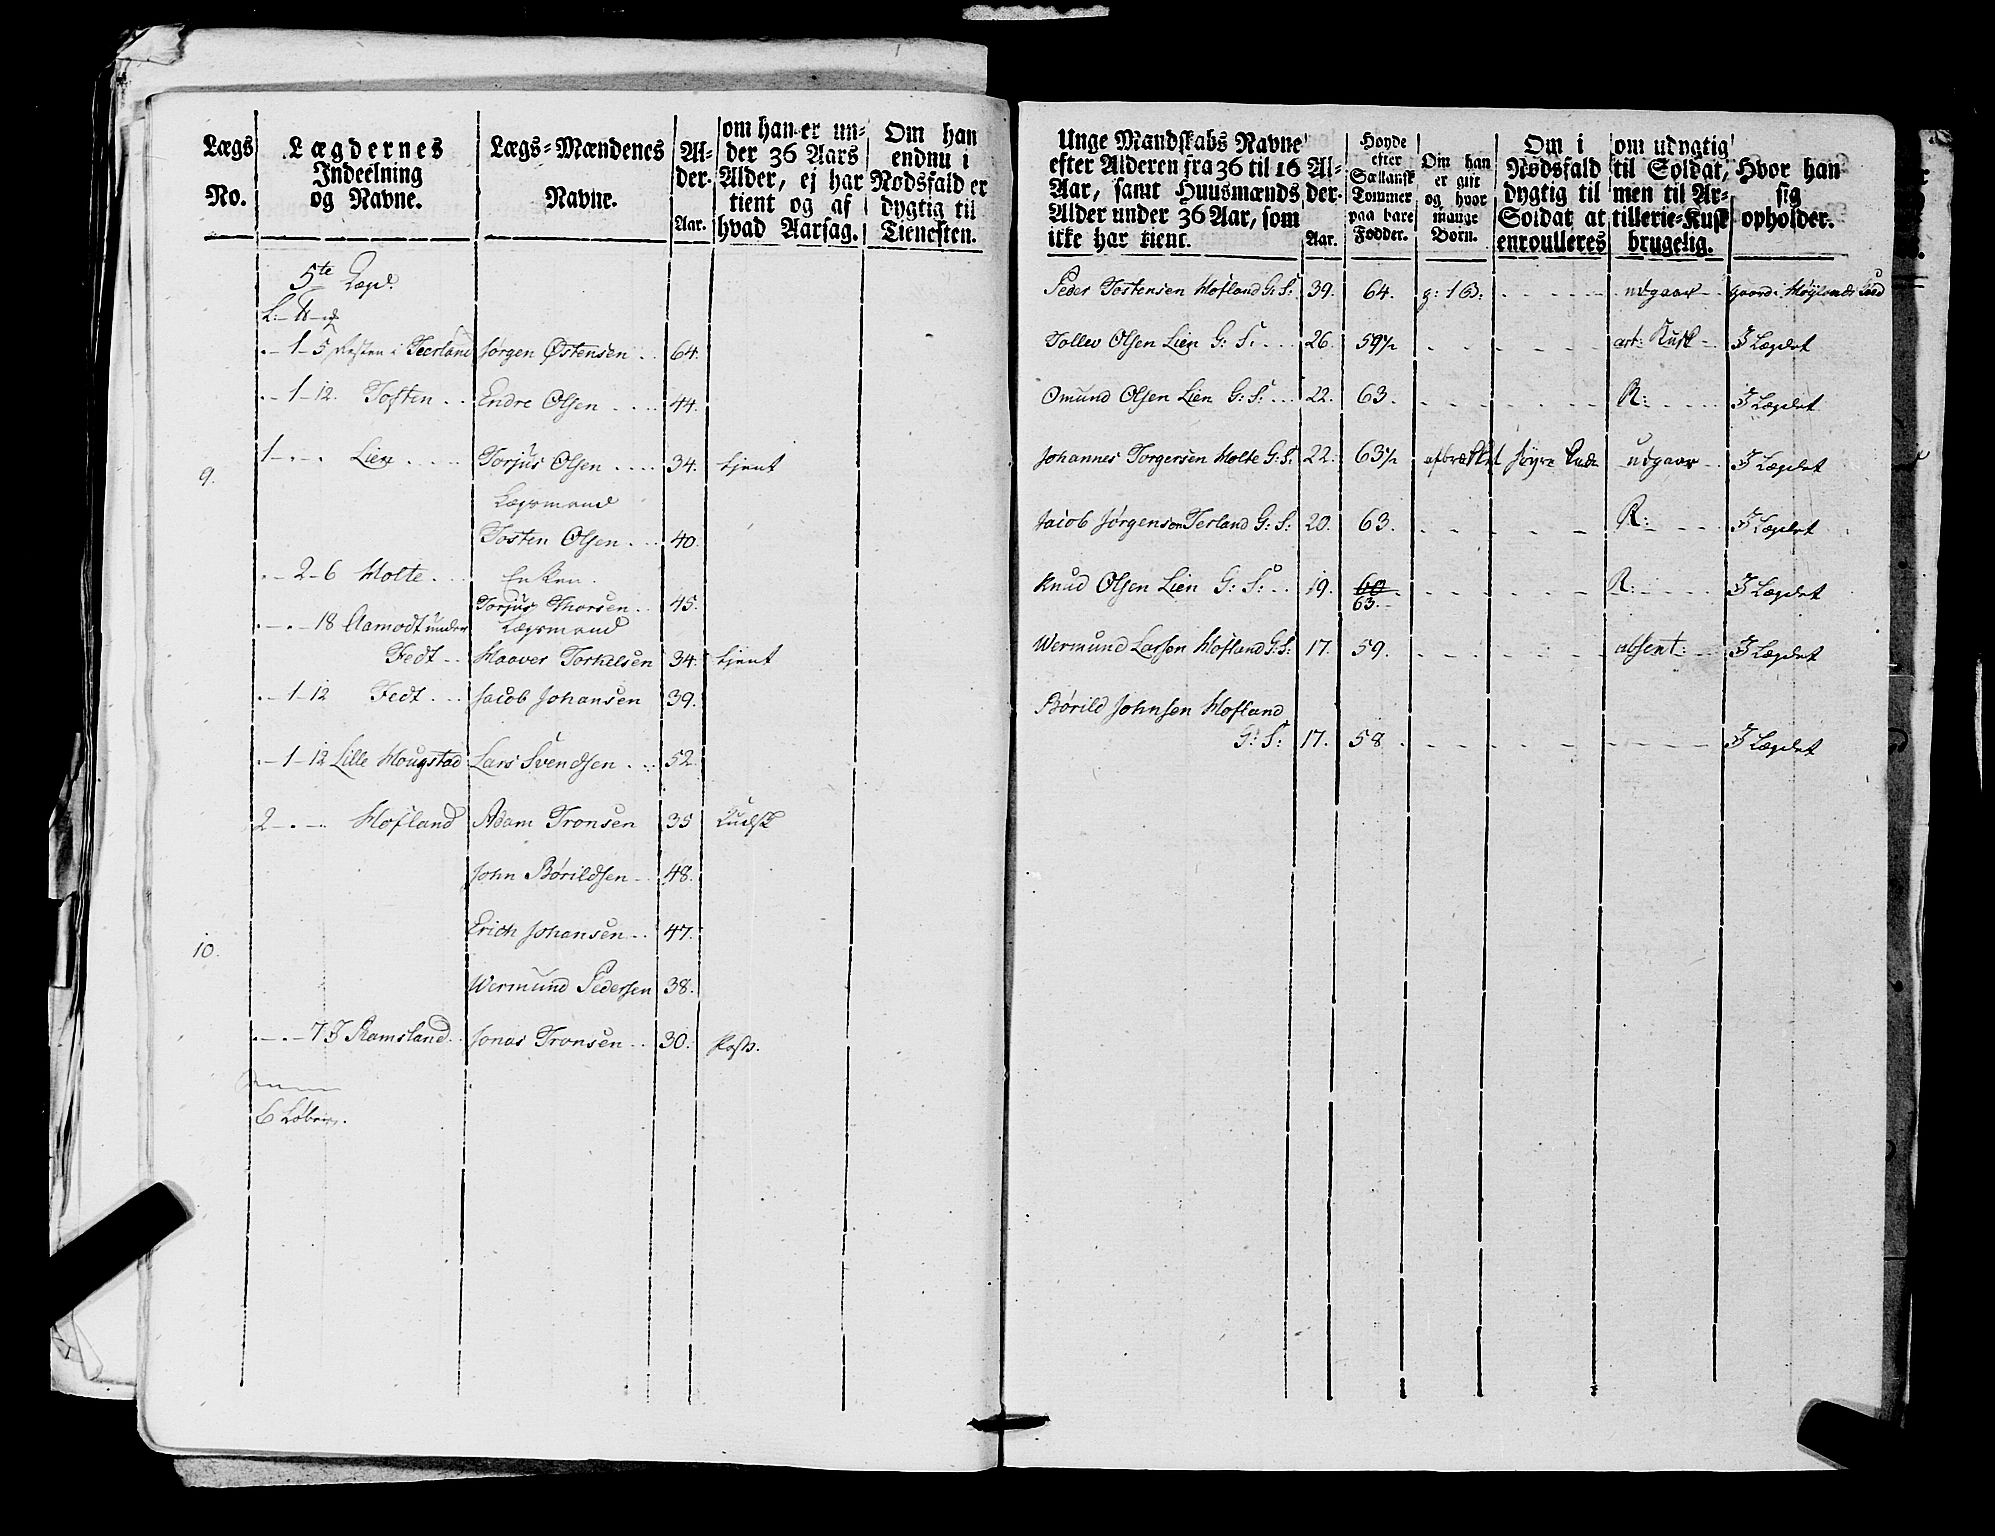 Lægs No. | Lægdernes Indeelning og Navne. | Lægs-Mændenes Navne. | Al-der. Aar. | om han er un-der 36 Aars Alder, ej har tient og af hvad Aarsag. | Om han endnu i Nødsfald er dygtig til Tienesten.
5te Lægd.
L: H: d
- 1 - 5 Resten i Teerland | Jørgen Østensen . . | 64.
- 1 - 12. Toften . . | Endre Olsen . . . . | 44.
9. | 1 - . - Lien . . . . | Torjus Olsen . . . . | 34. | tjent
Lægsmand
Tosten Olsen . . . | 40.
. - 2 - 6 Holte . . . | Enken.
Torjus Thorsen . . | 45.
- . - 18 Aamodt under | Lægsmand
Fedt . . | Haaver Torkelsen | 34. | tjent
. - 1 - 12 Fedt . . . | Jacob Johansen | 39.
. - 1 - 12 Lille Hougstad | Lars Svendsen . . . | 52.
2 - . - Hofland | Adam Tronsen | 35
John Børildsen . . | 48.
10. | Erich Johansen . . | 47.
Wermund Pedersen | 38.
- . - 7 I Ramsland . . | Jonas Tronsen . . | 30.
6 Løber.
Unge Mandskabs Navne efter Alderen fra 36 til 16 Aar, samt Huusmænds Alder under 36 Aar, som ikke har tient. | Al-der. Aar. | Høyde efter Sællansk Tommer paa bare Fødder. | Om han er gift og hvor mange Børn. | Om i Nødsfald dygtig til Soldat at enroulleres | om udygtig til Soldat, men til Ar-tillerie-Kusk brugelig. | Hvor han sig opholder.
Peder Tostensen Hofland G: S: | 39. | 64. | g: 1 B: | - - - - | udgaar - | gaard i Høylands
Tollev Olsen Lien G: S: . . . | 26. | 59½ | - - | - - - | art: Kusk - | I Lægdet
Omund Olsen Lien G: S: . . . | 22. | 63. | - - | - - - | R: - - - - | I Lægdet
Johannes Torgersen Holte G: S: | 22. | 63½ | udgaar - | I Lægdet
Jacob Jørgensen Terland G: S: | 20. | 63. | - - | - - - | R: - - - | I Lægdet
Knud Olsen Lien G: S: . . | 19. | 60
63. - | - - | - - - | R: - - - | I Lægdet
Wermund Larsen Hofland G: S: | 17. | 59. | - - | - - - | absent: - | I Lægdet
Børild Johnsen Hofland
G: S: | 17. | 58. | - - | - - - | - - - - | I Lægdet